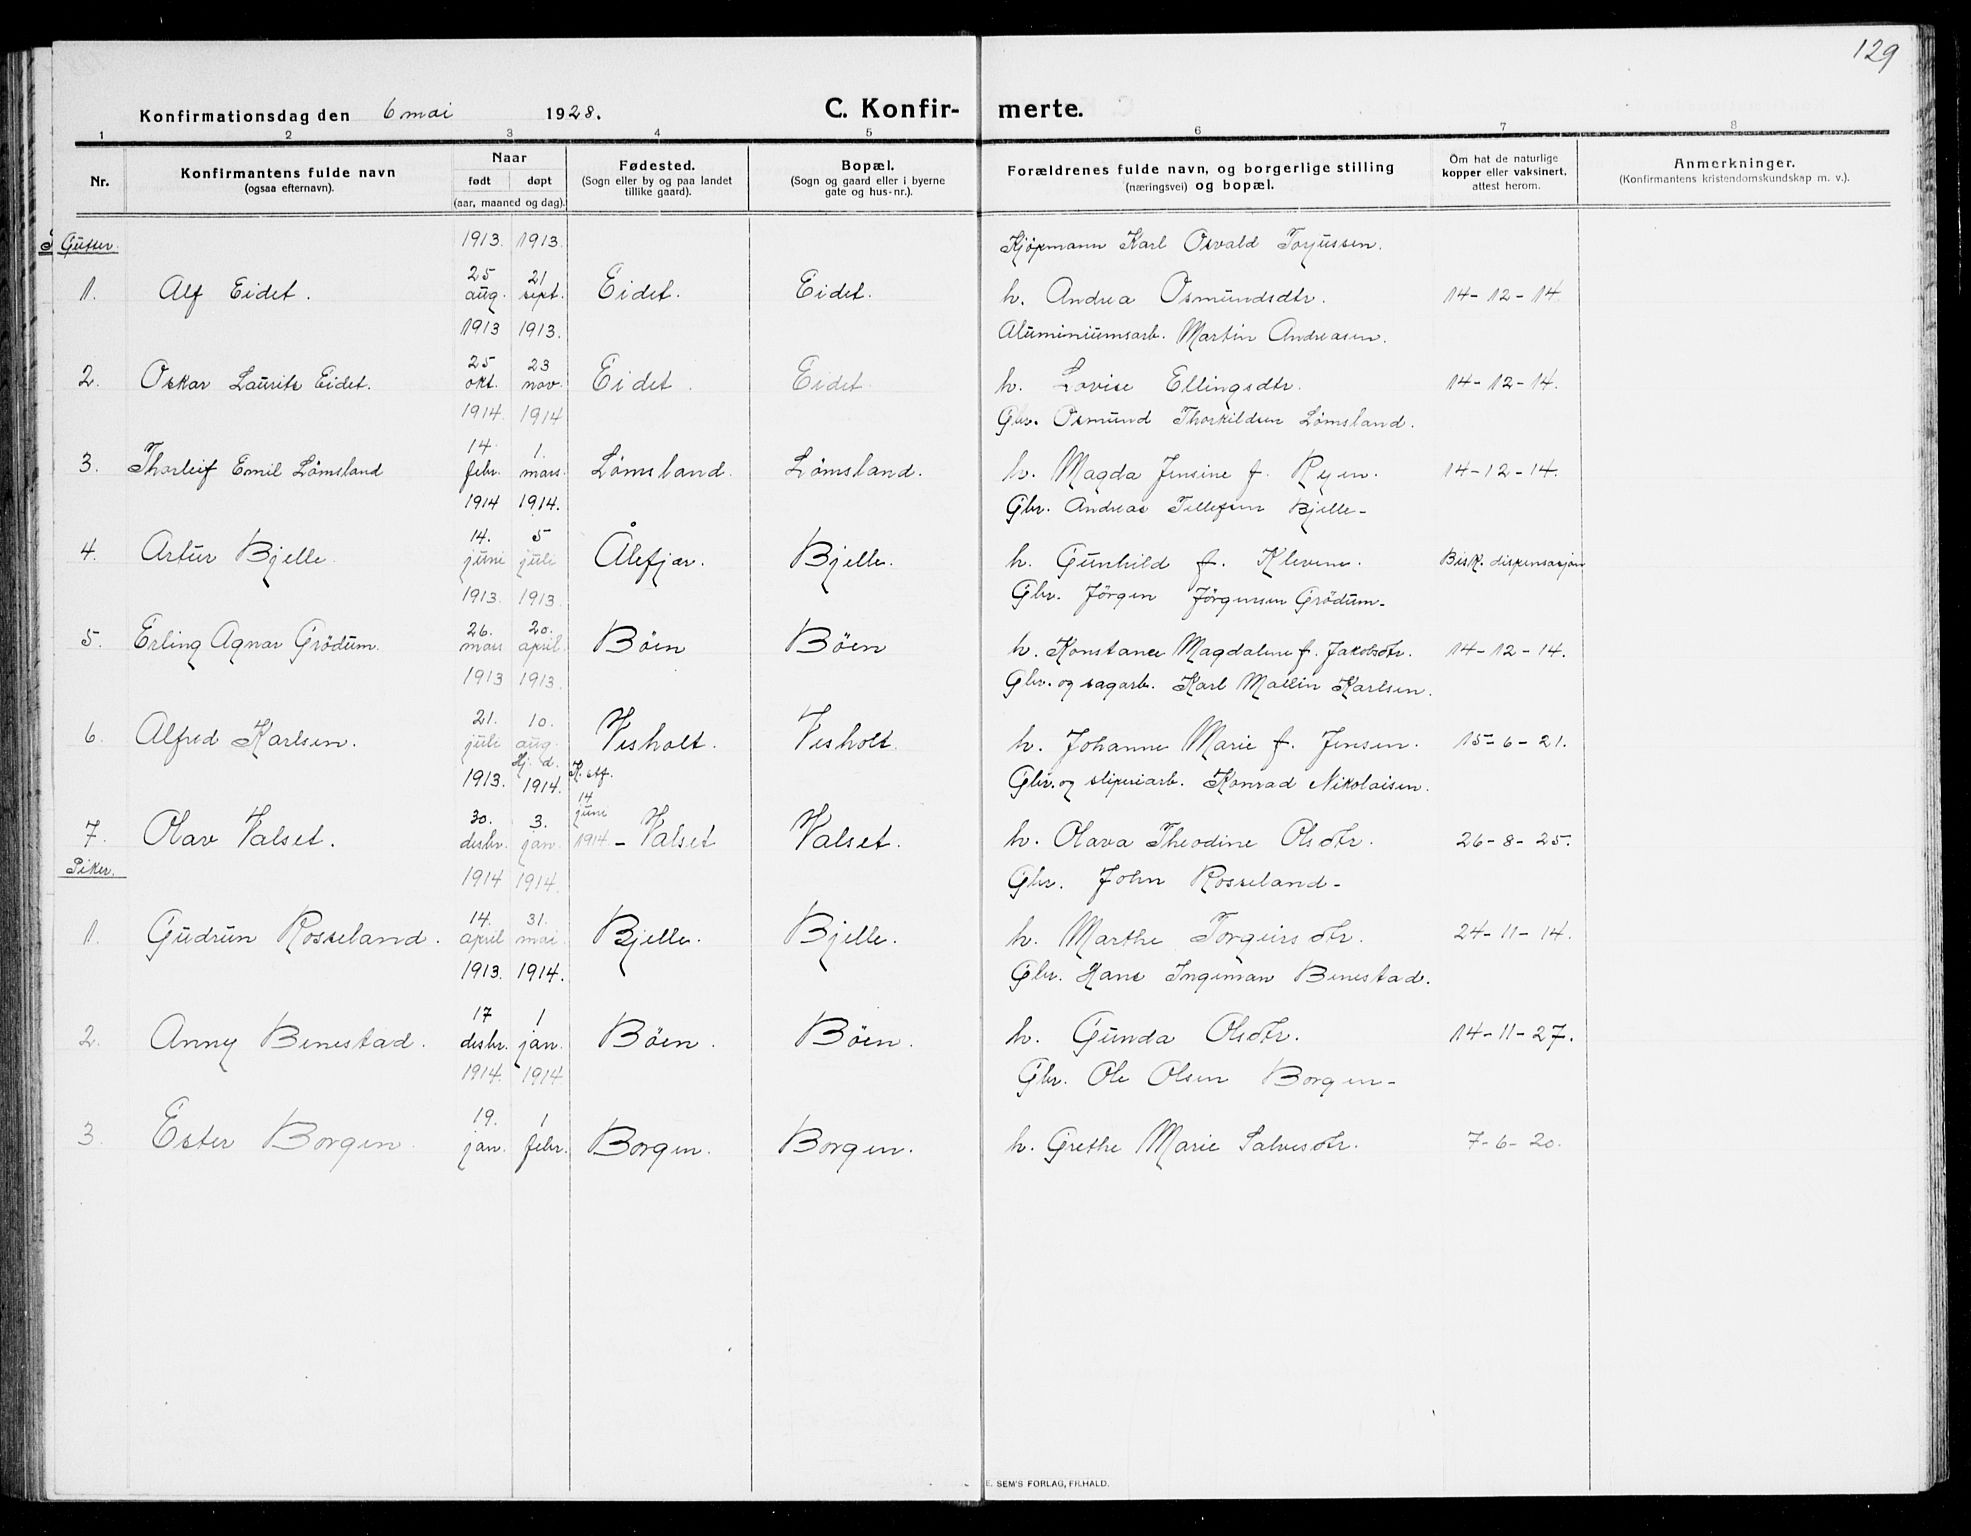 129
Konfirmationsdag den 6 mai 1928. C. Konfir- merte.
1 2 3 4 5 6 7 8
Nr. Konfirmantens fulde navn (ogsaa efternavn). Naar født døpt (aar, maaned og dag). Fødested. (Sogn eller by og paa landet tillike gaard). Bopæl. (Sogn og gaard eller i byerne gate og hus-nr.). Forældrenes fulde navn, og borgerlige stilling (næringsvei) og bopæl. Om hat de naturlige kopper eller vaksinert, attest herom. Anmerkninger. (Konfirmantens kristendomskundskap m. v.).
Gutter. 1913. 1913. Kjøpmann Karl Osvald Torjussen.
1. Alf Eidet. 25 aug. 21 sept. Eidet. Eidet. h. Andrea Osmundsdtr. 14-12-14.
1913 1913. Aluminiumsarb. Martin Andreasen.
2. Oskar Laurits Eidet. 25 okt. 23 nov. Eidet. Eidet. h. Lovise Ellingsdtr. 14-12-14.
1914. 1914 Gbr. Osmund Thorkildsen Lømsland.
3. Thorleif Emil Lømsland 14. febr. 1. mars. Lømsland. Lømsland. h. Magda Jensine f. Ryen. 14-12-14.
1914 1914. Gbr. Andreas Tellefsen Bjelle-
4. Artur Bjelle. 14. juni 5 juli Ålefjær. Bjelle. h. Gunhild f. Klevene. Bisk. dispensasjon
1913. 1913. Gbr. Jørgen Jørgensen Grødum-
5. Erling Agnar Grødum. 26. mars 20. april. Bøen Bøen h. Konstance Magdalene f. Jakobsdtr. 14-12-14.
1913 1913. Gbr. og sagarb. Karl Mallin Karlsen.
6. Alfred Karlsen. 21. juli 10. aug. Vesholt. Vesholt. h. Johanne Marie f. Jensen. 15-6-21.
1913. Hj. d. 1914. K. stf. 14 juni 1914 Gbr. og sliperiarb. Konrad Nikolaisen.
7. Olav Valset. 30. desbr. 3. jan. - Valset Valset. h. Olava Theodine Olsdtr. 26-8-25.
Piker. 1914 1914. Gbr. John Rosseland-
1. Gudrun Rosseland. 14. april 31. mai. Bjelle. Bjelle. h. Marthe Torgeirsdtr. 24-11-14.
1913. 1914. Gbr. Hans Ingeman Benestad.
2. Anny Benestad. 17 desbr. 1 jan. Bøen. Bøen. h. Gunda Olsdtr. 14-11-27.
1914. 1914 Gbr. Ole Olsen Borgen-
3. Ester Borgen. 19. jan. 1 febr. Borgen. Borgen. h. Grethe Marie Salvesdtr. 7-6-20.
E. SEM'S FORLAG, FR.HALD.